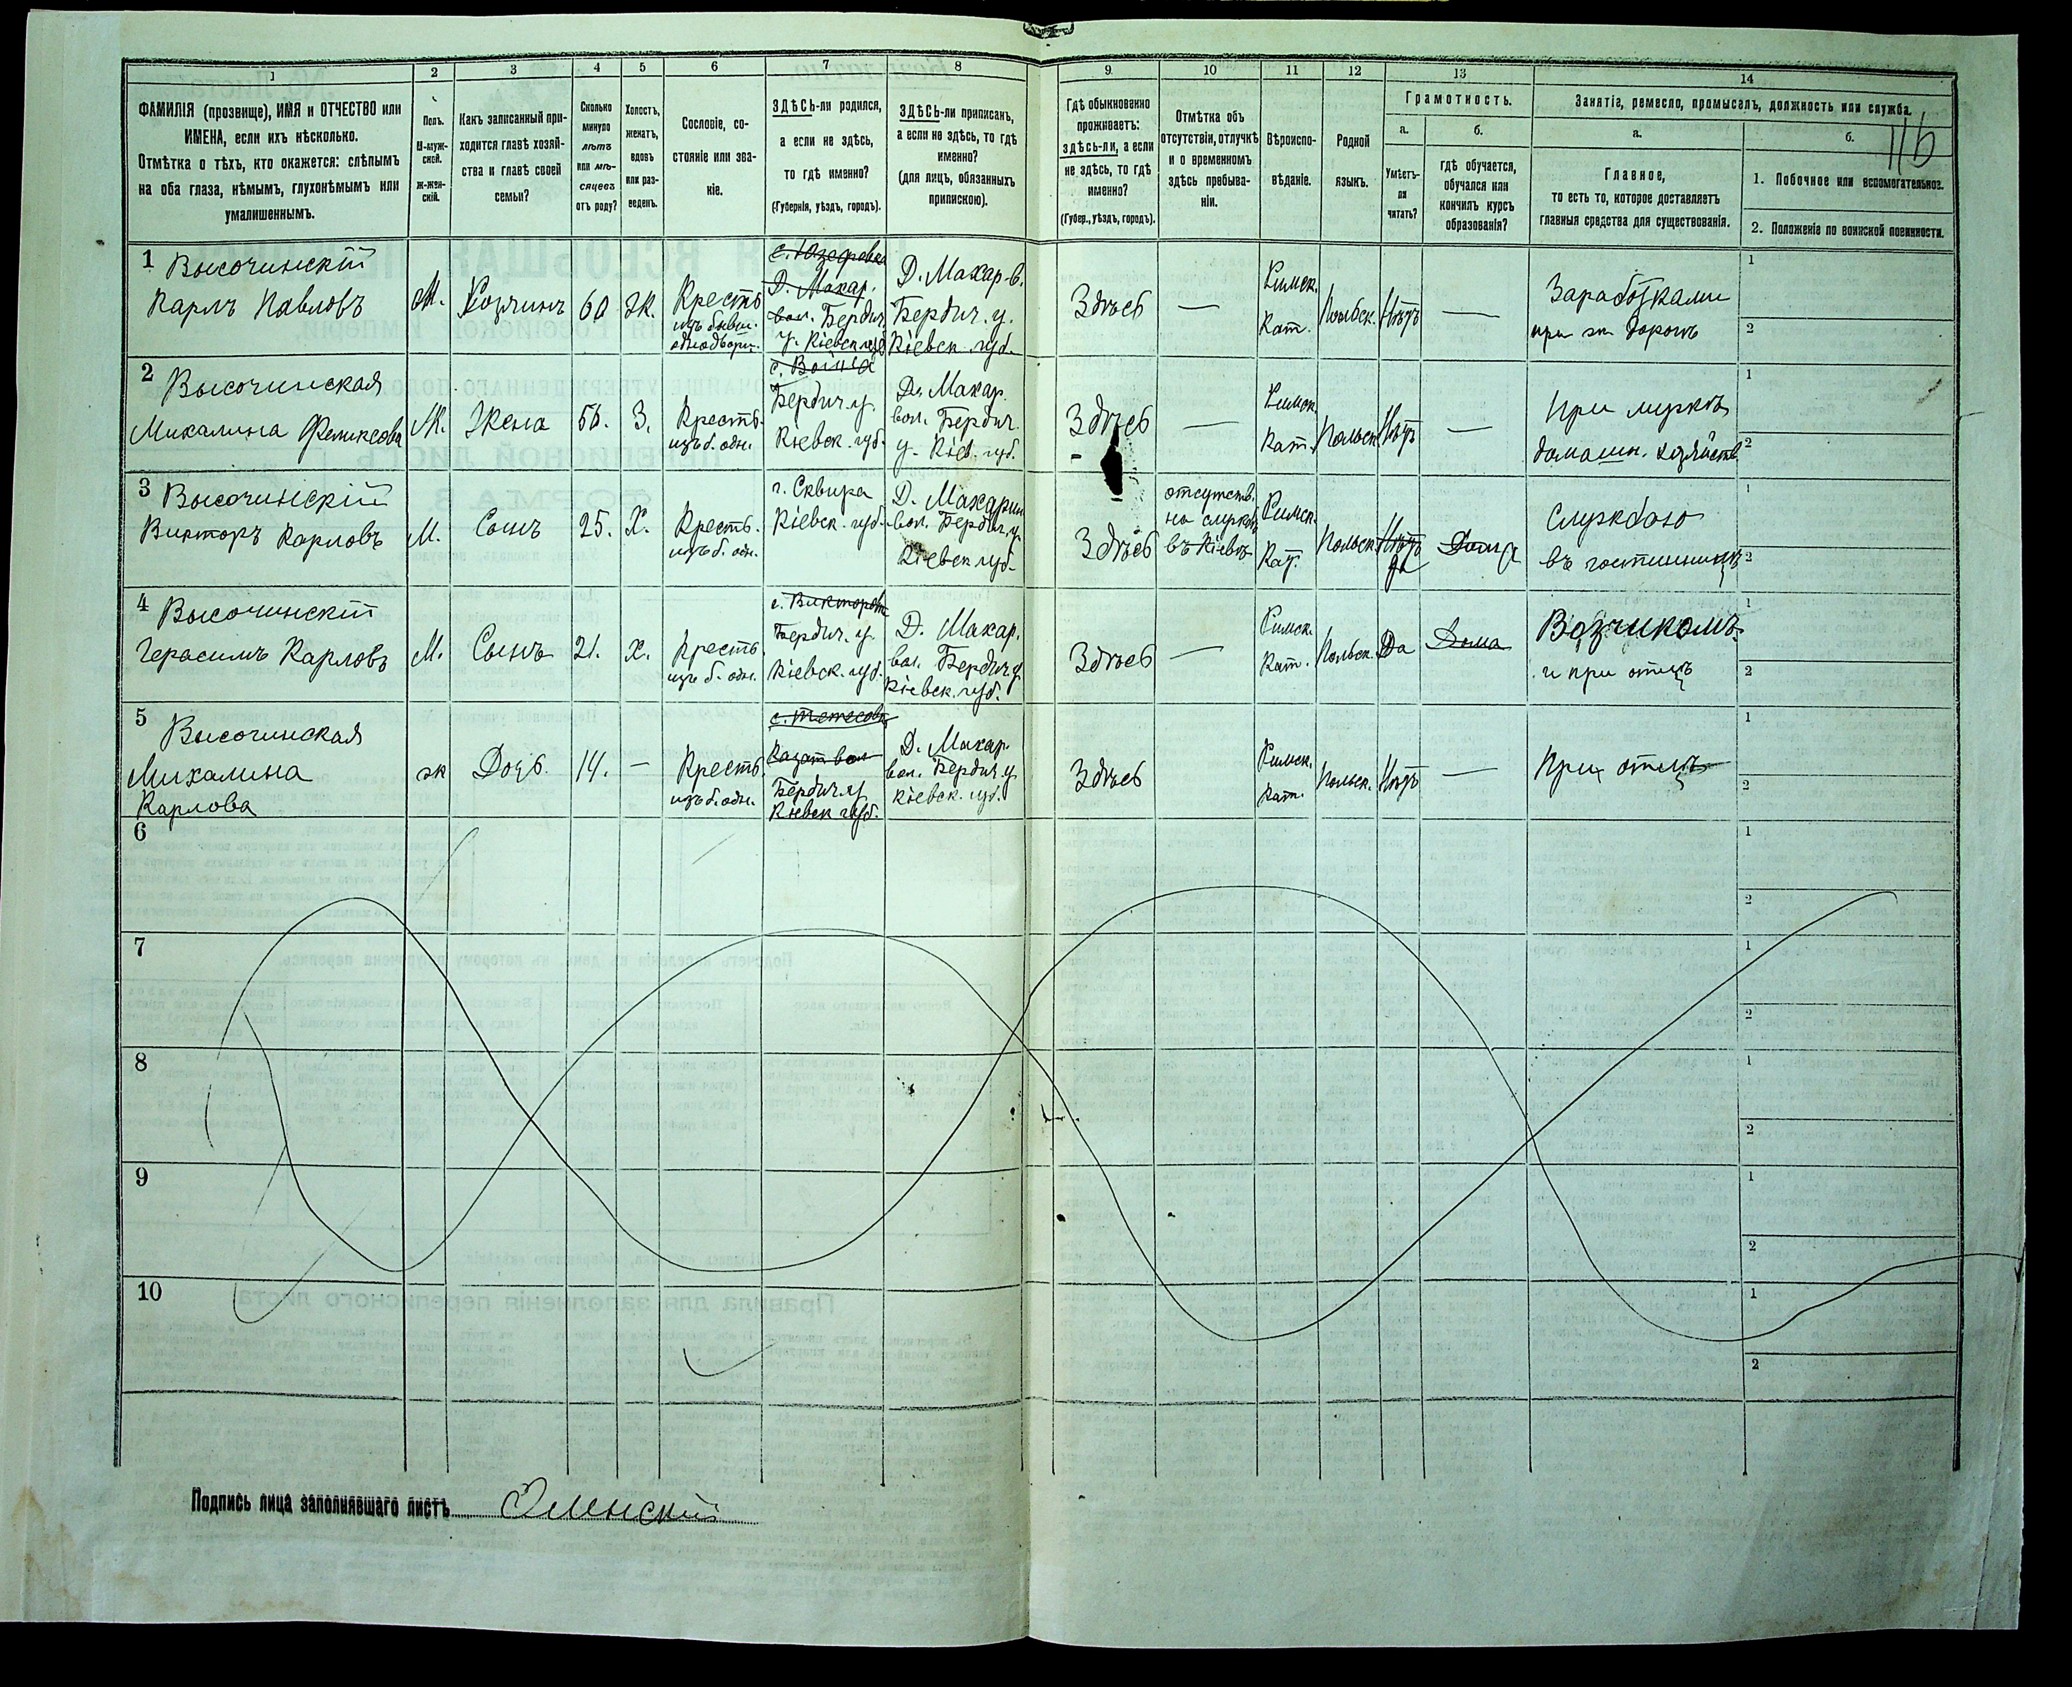 1 2 3 4 5 6 7 8 9 10 11 12 13 14
ФАМИЛІЯ (прозвище), ИМЯ и ОТЧЕСТВО или
ИМЕНА, если ихъ нѣсколько.
Отмѣтка о тѣхъ, кто окажется: слѣпымъ
на оба глаза, нѣмымъ, глухонѣмымъ или
умалишеннымъ.
Полъ.
М-муж-
ской.
ж-жен-
скій.
Какъ записанный при-
ходится главѣ хозяй-
ства и главѣ своей
семьи?
Сколько
минуло
лѣтъ
или мѣ-
сяцевъ
отъ роду?
Холостъ,
женатъ,
вдовъ
или раз-
веденъ.
Сословіе, со-
стояніе или зва-
ніе.
ЗДѢСЬ-ли родился,
а если не здѣсь,
то гдѣ именно?
(Губернія, уѣздъ, городъ).
ЗДѢСЬ-ли приписанъ,
а если не здѣсь, то гдѣ
именно?
(для лицъ, обязанныхъ
припискою).
Гдѣ обыкновенно
проживаетъ:
здѣсь-ли, а если
не здѣсь, то гдѣ
именно?
(Губер., уѣздъ, городъ).
Отмѣтка объ
отсутствіи, отлучкѣ
и о временномъ
здѣсь пребыва-
ніи.
Вѣроиспо-
вѣданіе.
Родной
языкъ.
Грамотность.
а.
Умѣетъ-
ли
читать?
б.
гдѣ обучается,
обучался или
кончилъ курсъ
образованія?
Занятіе, ремесло, промыселъ, должность или служба.
а.
Главное,
то есть то, которое доставляетъ
главныя средства для существованія.
б.
116
1. Побочное или вспомогательное.
2. Положеніе по воинской повинности.
1 Высочинскій
Карлъ Павловъ
М.
Хозяинъ
60
ж.
Крестъ
изъ бывш.
однодворц.
Д. Макар.
вол. Бердич.
у. Кіевск. губ.
Д. Макар-в.
Бердич. у.
Кіевск. губ.
Здѣсь
—
Римск.
Кат.
Польск.
Нѣтъ
Заработками
при ж. дорогѣ
1
2
2 Высочинская
Михалина Феликсова
Ж.
Жена
56.
З.
Крестъ.
изъ б. одн.
Бердич. у.
Кіевск. губ.
Д. Макар.
вол. Бердич.
у. Кіев. губ.
Здѣсь
—
Римск.
Кат.
Польск.
Нѣтъ
—
При мужѣ
домашн. хозяйств.
1
2
3 Высочинскій
Викторъ Карловъ
М.
Сынъ
25.
Х.
Крестъ.
изъ б. одн.
г. Сквира
Кіевск. губ.
Д. Макарин
вол. Бердич. у.
Кіевск. губ.
Здѣсь
отсутств.
на службѣ
въ Кіевѣ
Римск.
Кат.
Польск.
Нѣтъ
да
Дома
Службою
въ гостинницѣ
1
2
4 Высочинскій
Герасимъ Карловъ
М.
Сынъ
21.
х.
Крестъ.
изъ б. одн.
Бердич. у.
Кіевск. губ.
Д. Макар.
вол. Бердич у.
Кіевск. губ.
Здѣсь
—
Римск.
Кат.
Польск.
Да
Дома
Возчикомъ
и при отцѣ
1
2
5 Высочинская
Михалина
Карлова
ж
Дочь.
14.
—
Крестъ.
изъ б. одн.
Казат вол
Бердич. у.
Кіевск губ.
Д. Макар.
вол. Бердич. у.
Кіевск. губ.
Здѣсь
Римск.
Кат.
Польск.
Нѣтъ
—
При отцѣ
1
2
6
1
2
7
1
2
8
1
2
9
1
2
10
1
2
Подпись лица заполнявшаго листъ